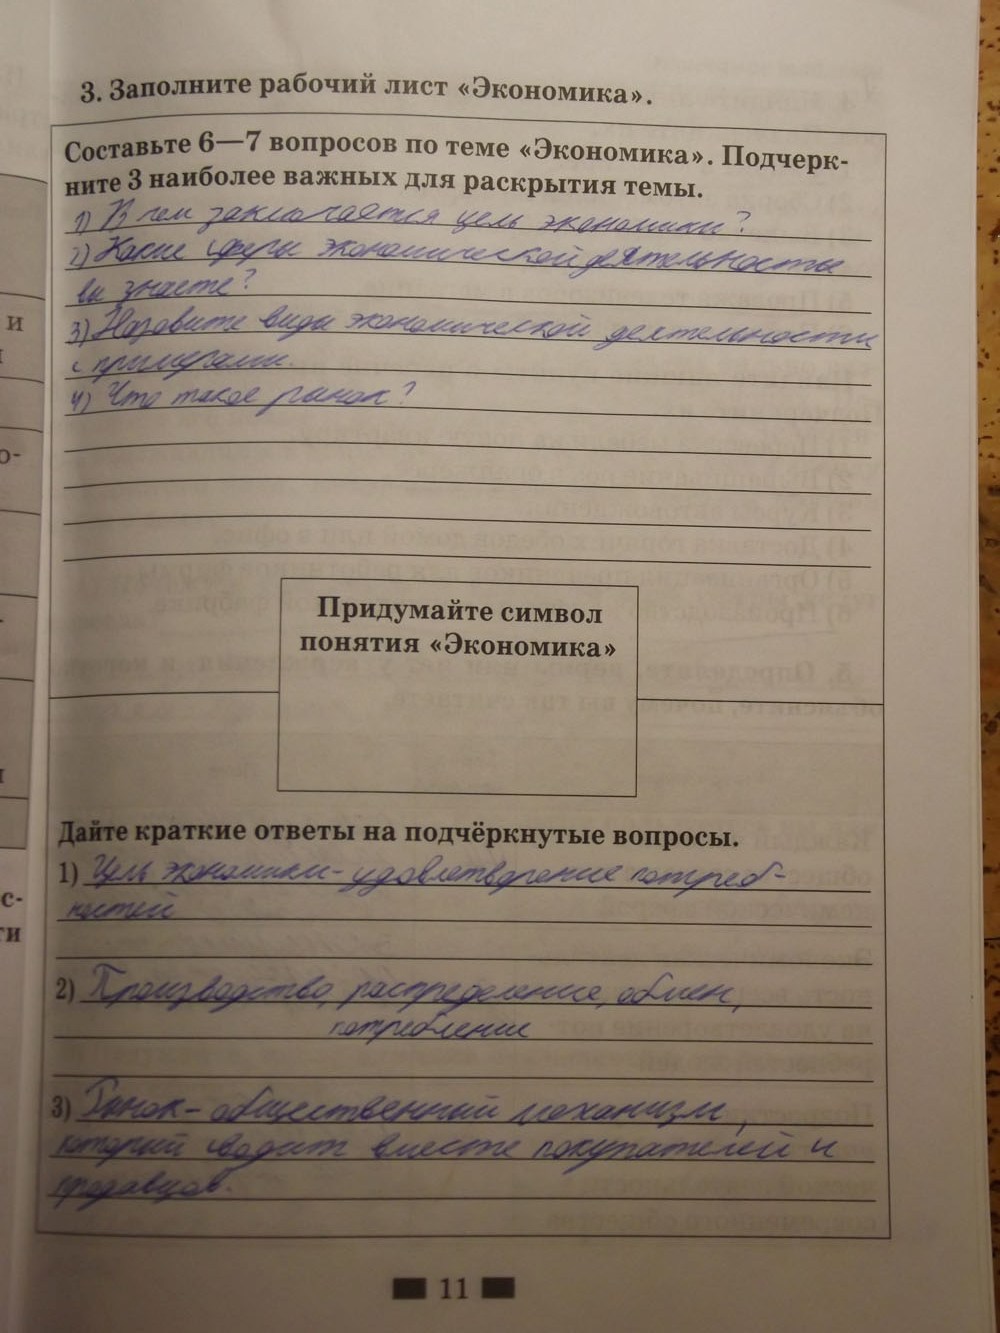 3. Заполните рабочий лист «Экономика».
Составьте 6—7 вопросов по теме «Экономика». Подчерк-
ните 3 наиболее важных для раскрытия темы.
1) В чем заключается цель экономики?
2) Какие сферы экономической деятельности
вы знаете?
3) Назовите виды экономической деятельности
с примерами.
4) Что такое рынок?
Придумайте символ
понятия «Экономика»
Дайте краткие ответы на подчёркнутые вопросы.
1) Цель экономики - удовлетворение потреб-
ностей
2) Производство, распределение, обмен,
потребление
3) Рынок - общественный механизм,
который сводит вместе покупателей и
продавцов.
11